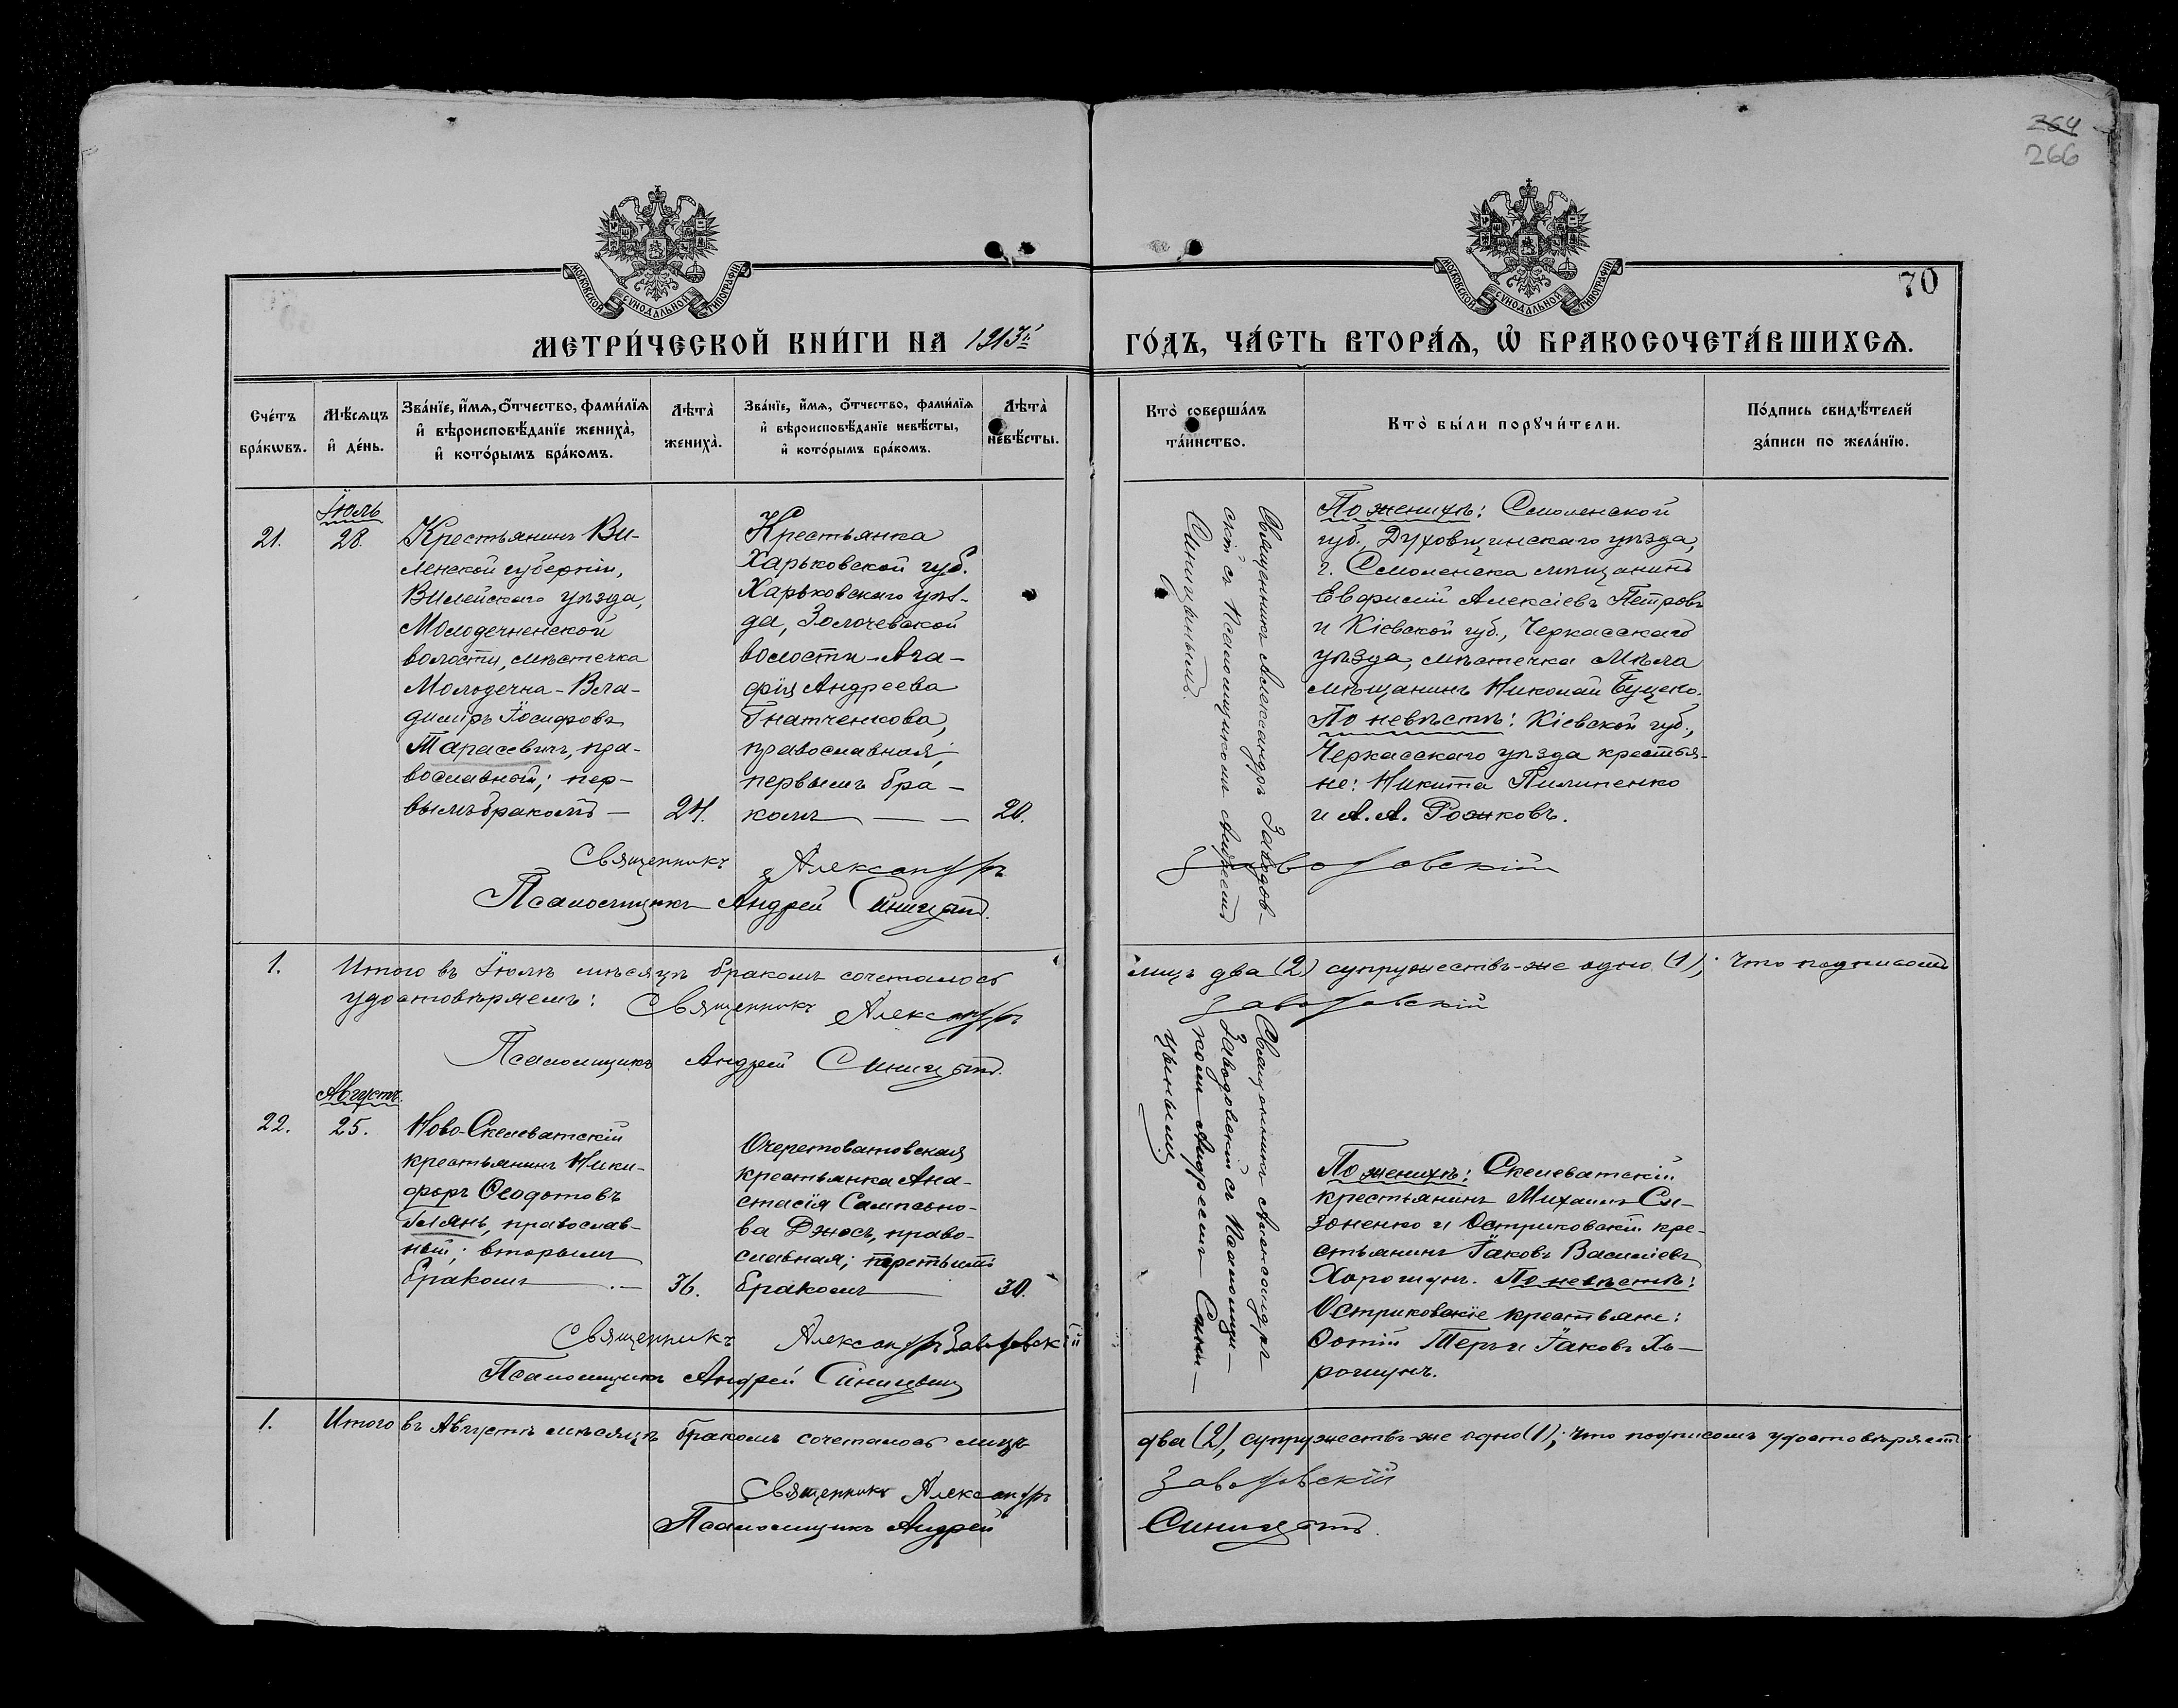 264
266
МОСКОВСКОЙ СѴНОДАЛЬНОЙ ТИПОГРАФІИ
МОСКОВСКОЙ СѴНОДАЛЬНОЙ ТИПОГРАФІИ
70
МЕТРИ́ЧЕСКОЙ КНИ́ГИ НА 1913й
ГО́ДЪ, ЧА́СТЬ ВТОРА́Ѧ, Ѡ҆ БРАКОСОЧЕТА́ВШИХСѦ.
Сче́тъ
бра́кѡвъ.
Мѣ́сѧцъ
и҆ де́нь.
Зва́нїе, и҆́мѧ, ѻ҆́тчество, фами́лїѧ
и҆ вѣроисповѣ́данїе жениха̀,
и҆ кото́рымъ бра́комъ.
Лѣта̀
жениха̀.
Зва́нїе, и҆́мѧ, ѻ҆́тчество, фами́лїѧ
и҆ вѣроисповѣ́данїе невѣ́сты,
и҆ кото́рымъ бра́комъ.
Лѣта̀
невѣ́сты.
Кто̀ соверша́лъ
та́инство.
Кто̀ бы́ли порꙋчи́тели.
По́дпись свидѣ́телей
за́писи по жела́нїю.
Іюль
21.
28.
Крестьянинъ Ви-
ленской губерніи,
Вилейскаго уѣзда,
Молодечненской
волости, мѣстечка
Молодечна - Вла-
диміръ Іосифовъ
Тарасевичъ, пра-
вославный; пер-
вымъ бракомъ —
24.
Крестьянка
Харьковской губ.
Харьковскаго уѣз-
да, Золочевской
волости - Ага-
фія Андреева
Гнатченкова,
православная;
первымъ бра-
комъ — —
20.
Священникъ Александръ Заводов-
скій съ Псаломщикомъ Андреемъ
Синицынымъ.
По женихѣ: Смоленской
губ., Духовщинскаго уѣзда,
г. Смоленска мѣщанинъ
Евфимій Алексіевъ Петровъ
и Кіевской губ., Черкасскаго
уѣзда, мѣстечка Мѣла
мѣщанинъ Николай Буцено.
По невѣстѣ: Кіевской губ.,
Черкасскаго уѣзда крестья-
не: Никита Пилипенко
и А. А. Рожковъ.
Священникъ Александръ Заводовскій
Псаломщикъ Андрей Синицынъ.
1.
Итого въ Іюлѣ мѣсяцѣ бракомъ сочеталось лицъ два (2) супружествъ-же одно (1); что подписомъ
удостовѣряемъ: Священникъ Александръ Заводовскій
Псаломщикъ Андрей Синицынъ.
Августъ.
22.
25.
Ново-Скелеватскій
крестьянинъ Ники-
форъ Ѳеодотовъ
православ-
ный; вторымъ
бракомъ —
36.
Очеретоватовская
крестьянка Ана-
стасія Сампсоно-
ва Джосъ, право-
славная; третьимъ
бракомъ —
30.
Священникъ Александръ
Заводовскій съ Псаломщи-
комъ Андреемъ Сини-
цынымъ
По женихѣ: Скелеватскій
крестьянинъ Михаилъ Си-
зоненко и Остриковскій кре-
стьянинъ Іаковъ Васильевъ
Хорошунъ. По невѣстѣ:
Остриковскіе крестьяне:
Фотій Теръ и Іаковъ Хо-
рошунъ.
Священникъ Александръ Заводовскій
Псаломщикъ Андрей Синицынъ
1.
Итого въ Августѣ мѣсяцѣ бракомъ сочеталось лицъ два (2), супружествъ-же одно (1); что подписомъ удостовѣряемъ:
Священникъ Александръ Заводовскій
Псаломщикъ Андрей Синицынъ.